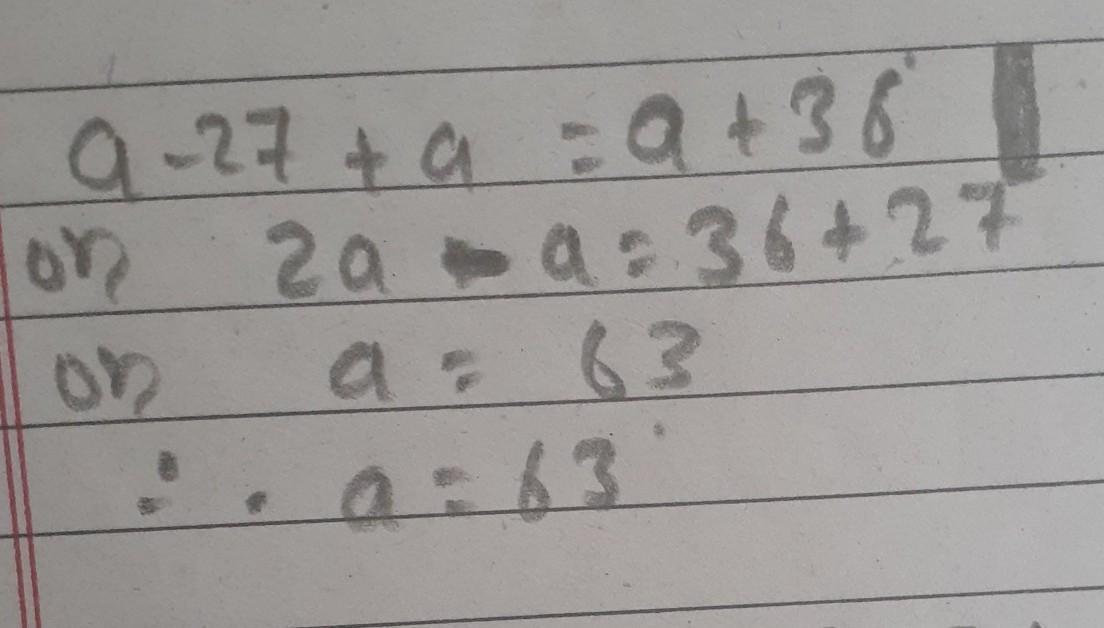 a - 27 + a = a + 36°
or 2a - a = 36 + 27
or a = 63
∴ a = 63°